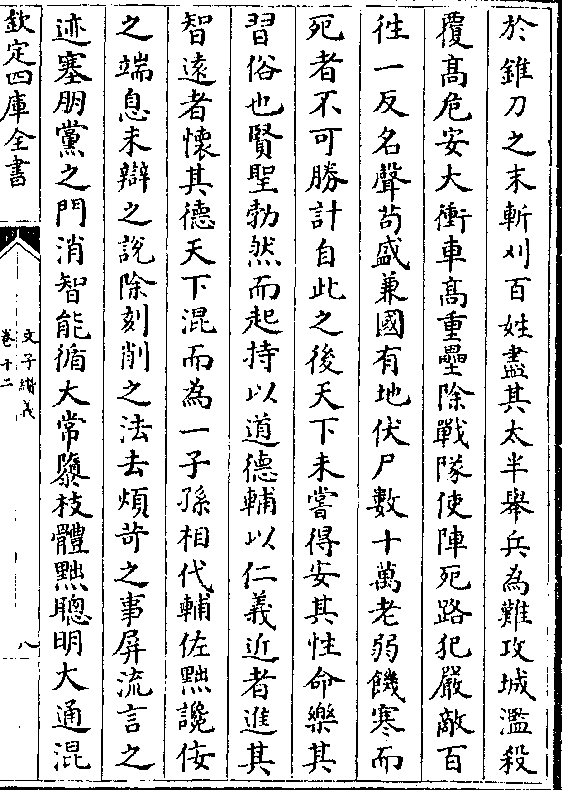 於錐刀之末斬刈百姓盡其太半舉兵為難攻城濫殺
覆髙危安大衝車髙重壘除戰隊使陣死路犯嚴敵百
徃一反名聲茍盛兼國有地伏尸數十萬老弱饑寒而
死者不可勝計自此之後天下未嘗得安其性命樂其
習俗也賢聖勃然而起持以道德輔以仁義近者進其
智遠者懷其德天下混而為一子孫相代輔佐黜讒佞
之端息末辯之說除刻削之法去煩苛之事屏流言之
迹塞朋黨之門消智能循大常隳枝體黜聰明大通混
欽定四庫全書
文子纉義
卷十二
八